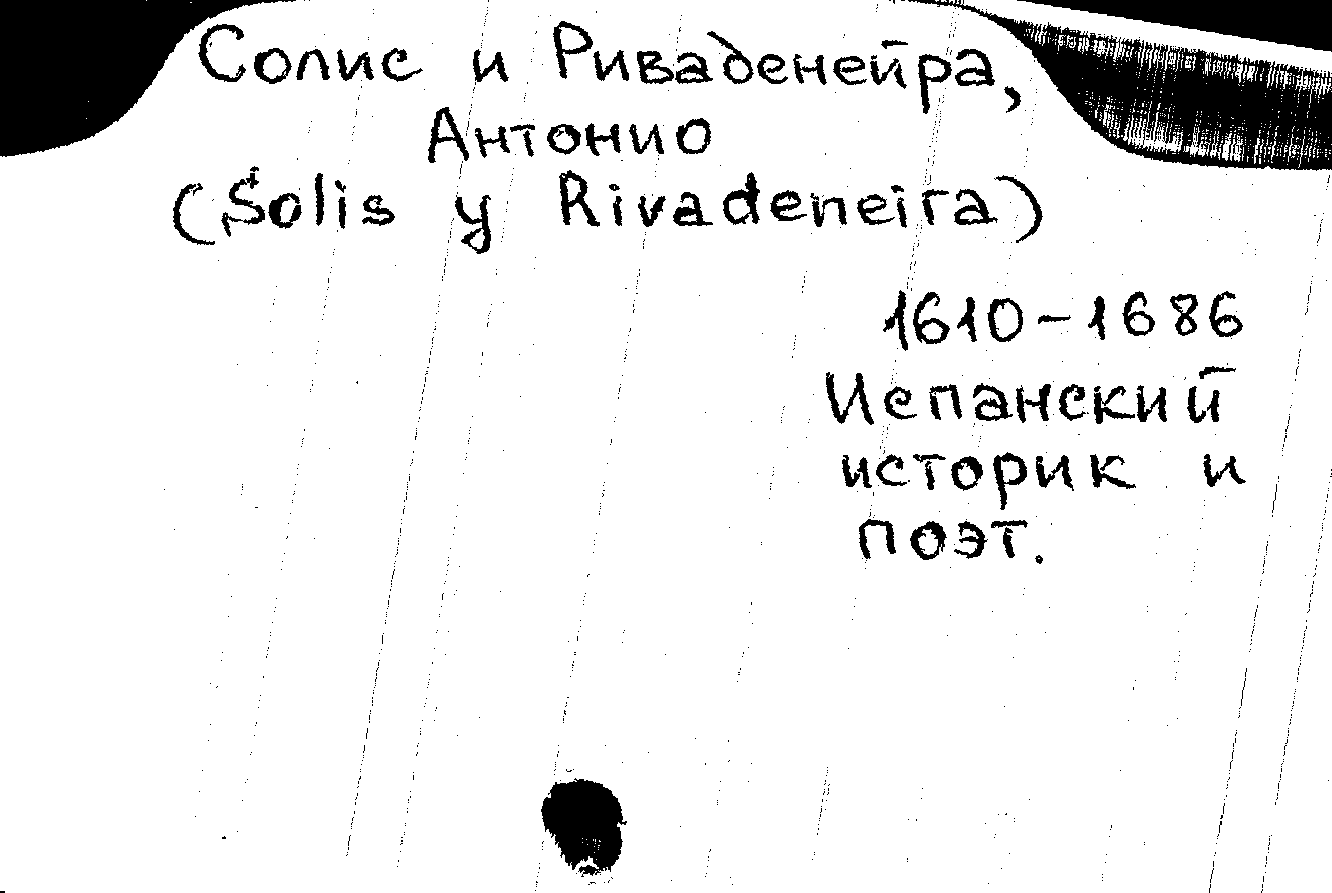 Солис и Риваденейра,
Антонио
(Solis y Rivadeneira)
1610-1686
Испанский
историк и
поэт.